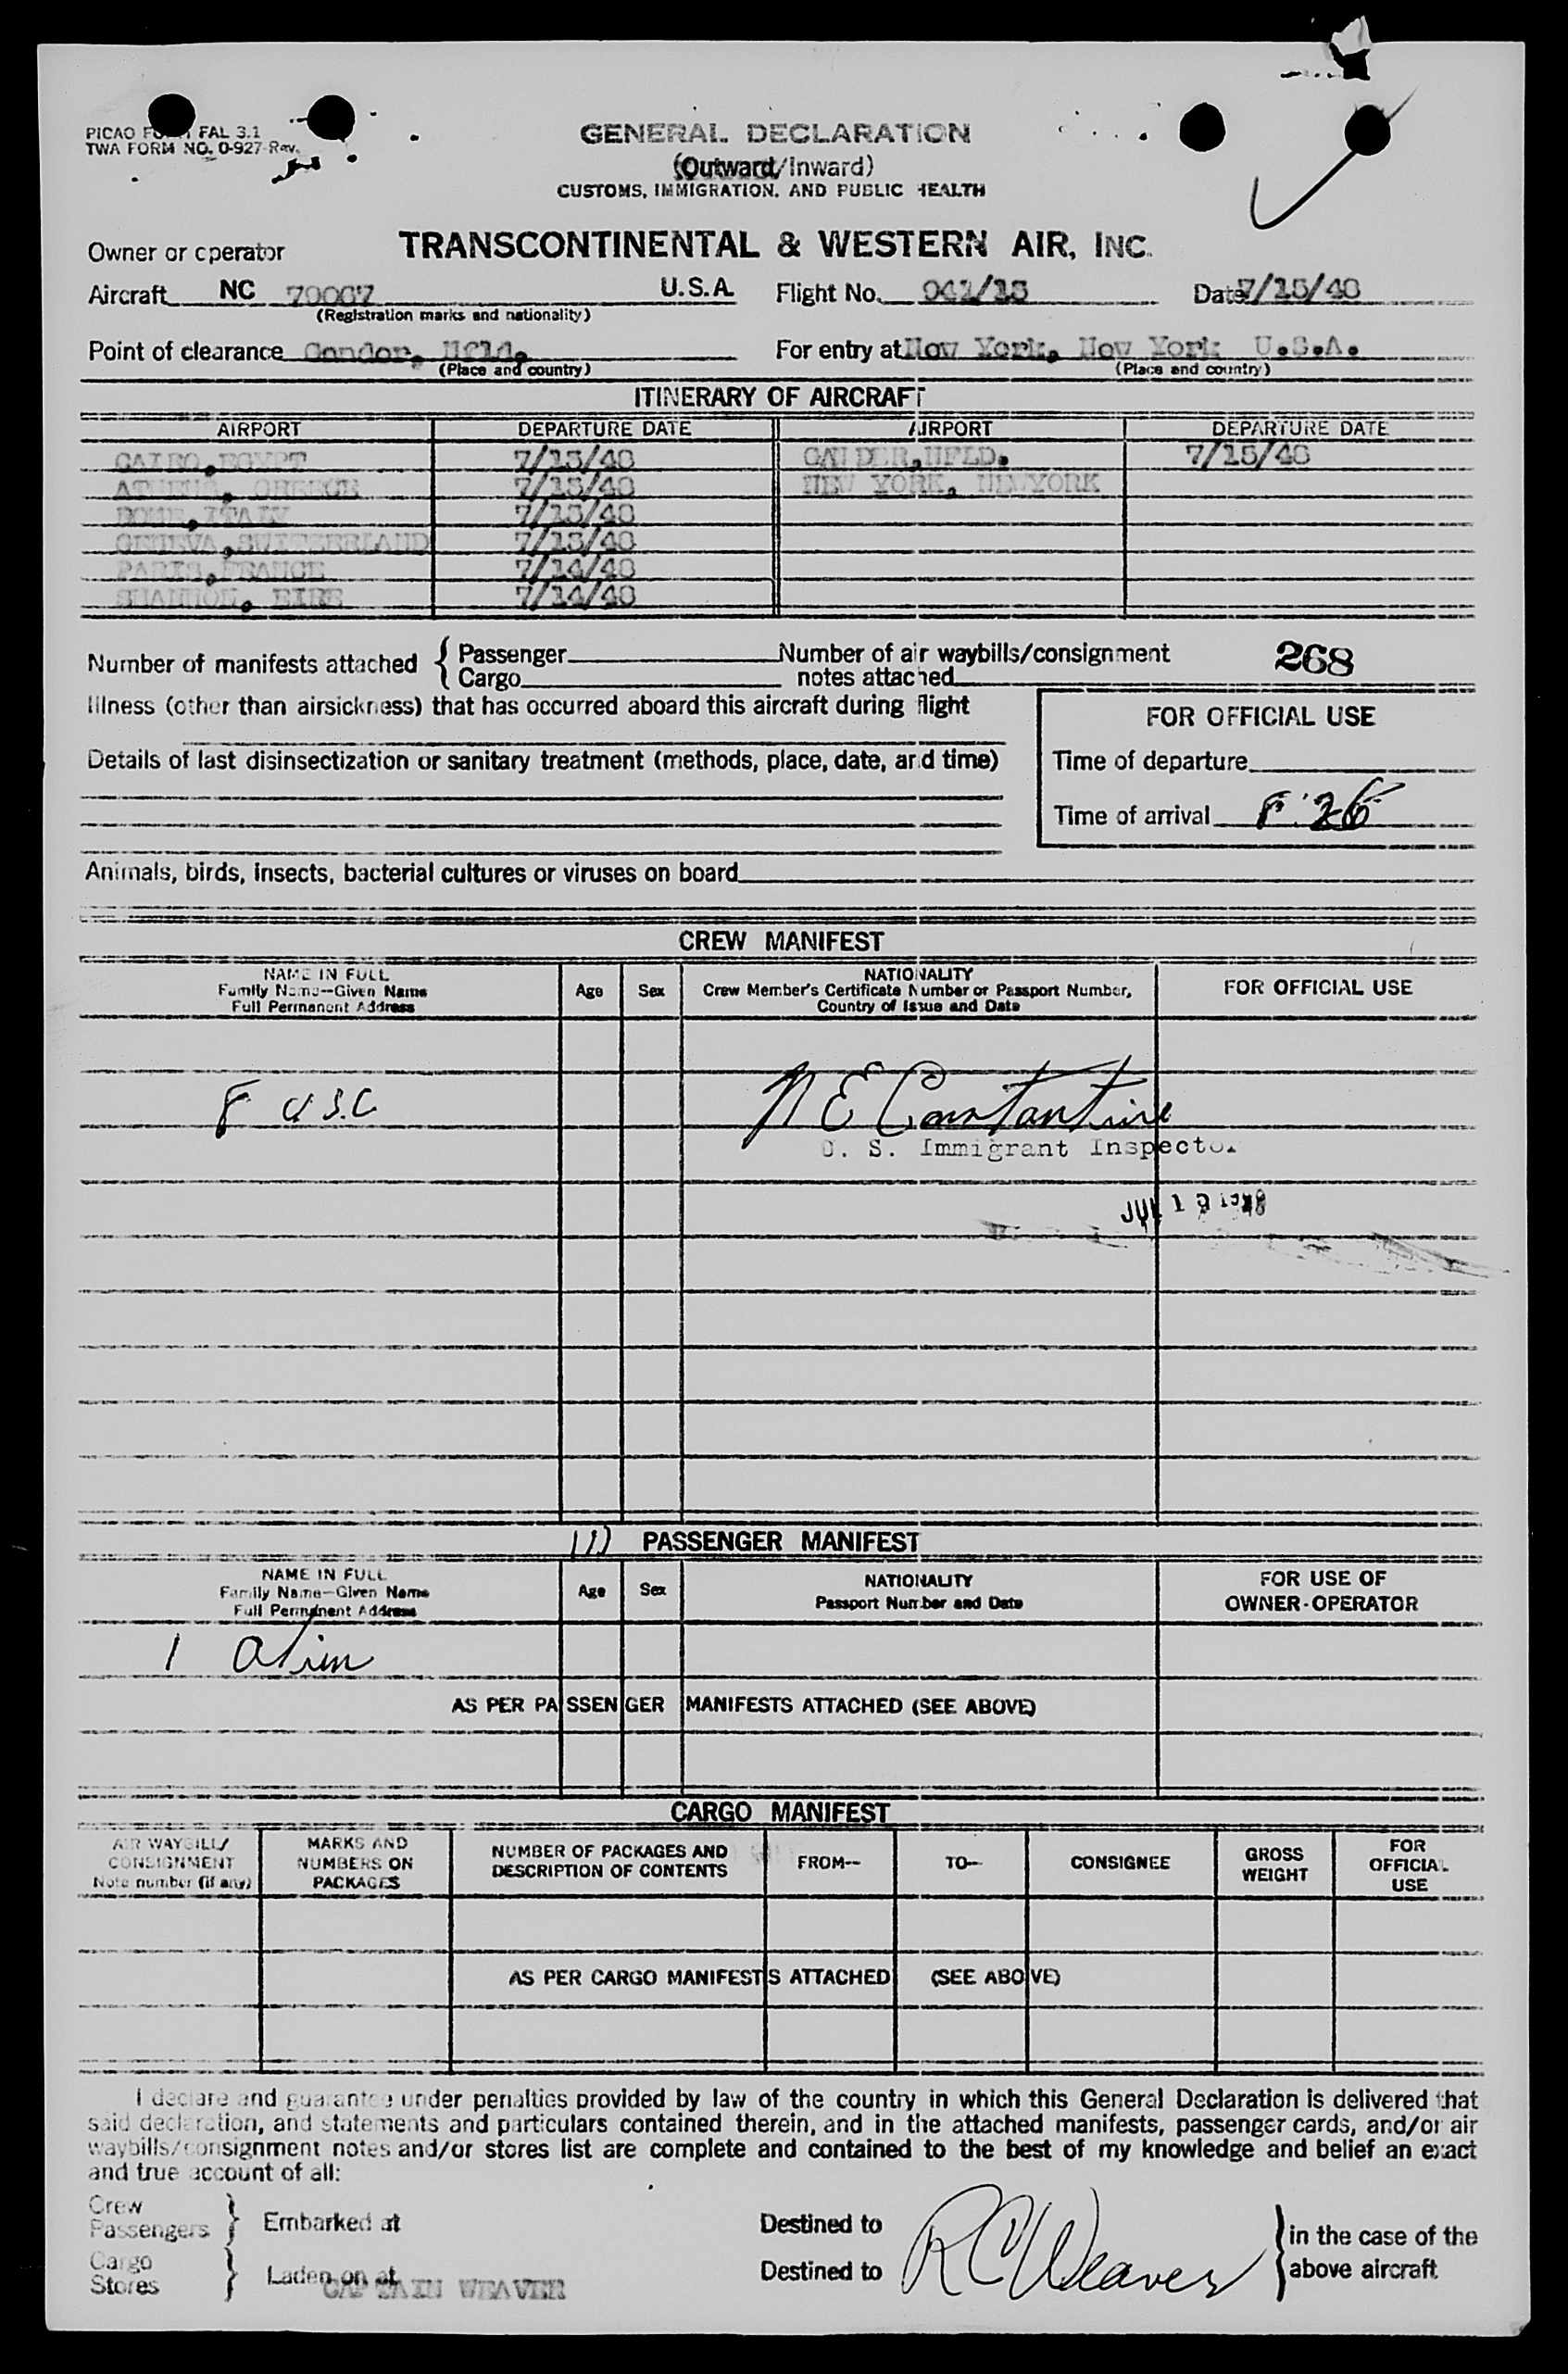 PICAO FORM FAL 3.1
TWA FORM NO. 0-927-Rev.
GENERAL DECLARATION
(Outward/Inward)
CUSTOMS, IMMIGRATION, AND PUBLIC HEALTH
Owner or operator TRANSCONTINENTAL & WESTERN AIR, INC.
Aircraft NC U.S.A. Flight No. Date 7/15/48
(Registration marks and nationality)
Point of clearance Gander, Nfld. For entry at New York, New York U.S.A.
(Place and country) (Place and country)
ITINERARY OF AIRCRAFT
AIRPORT DEPARTURE DATE AIRPORT DEPARTURE DATE
CAIRO, EGYPT 7/13/48 GANDER, NFLD. 7/15/48
ATHENS, GREECE 7/13/48 NEW YORK, NEWYORK
ROME, ITALY 7/13/48
GENEVA, SWITZERLAND 7/13/48
PARIS, FRANCE 7/14/48
SHANNON, EIRE 7/14/48
Number of manifests attached { Passenger Number of air waybills/consignment 268
Cargo notes attached
Illness (other than airsickness) that has occurred aboard this aircraft during flight
FOR OFFICIAL USE
Details of last disinsectization or sanitary treatment (methods, place, date, and time)
Time of departure
Time of arrival
Animals, birds, insects, bacterial cultures or viruses on board
CREW MANIFEST
NAME IN FULL
Family Name—Given Name
Full Permanent Address
Age Sex
NATIONALITY
Crew Member's Certificate Number or Passport Number,
Country of Issue and Date
FOR OFFICIAL USE
8 USC N E Constantine
U. S. Immigrant Inspector
PASSENGER MANIFEST
NAME IN FULL
Family Name—Given Name
Full Permanent Address
Age Sex
NATIONALITY
Passport Number and Date
FOR USE OF
OWNER-OPERATOR
1
AS PER PASSENGER MANIFESTS ATTACHED (SEE ABOVE)
CARGO MANIFEST
AIR WAYBILL/
CONSIGNMENT
Note number (if any)
MARKS AND
NUMBERS ON
PACKAGES
NUMBER OF PACKAGES AND
DESCRIPTION OF CONTENTS
FROM—
TO—
CONSIGNEE
GROSS
WEIGHT
FOR
OFFICIAL
USE
AS PER CARGO MANIFESTS ATTACHED (SEE ABOVE)
I declare and guarantee under penalties provided by law of the country in which this General Declaration is delivered that
said declaration, and statements and particulars contained therein, and in the attached manifests, passenger cards, and/or air
waybills/consignment notes and/or stores list are complete and contained to the best of my knowledge and belief an exact
and true account of all:
Crew
Passengers } Embarked at Destined to
Cargo
Stores } Laden on at Destined to
CAPTAIN WEAVER
RC Weaver
} in the case of the
above aircraft